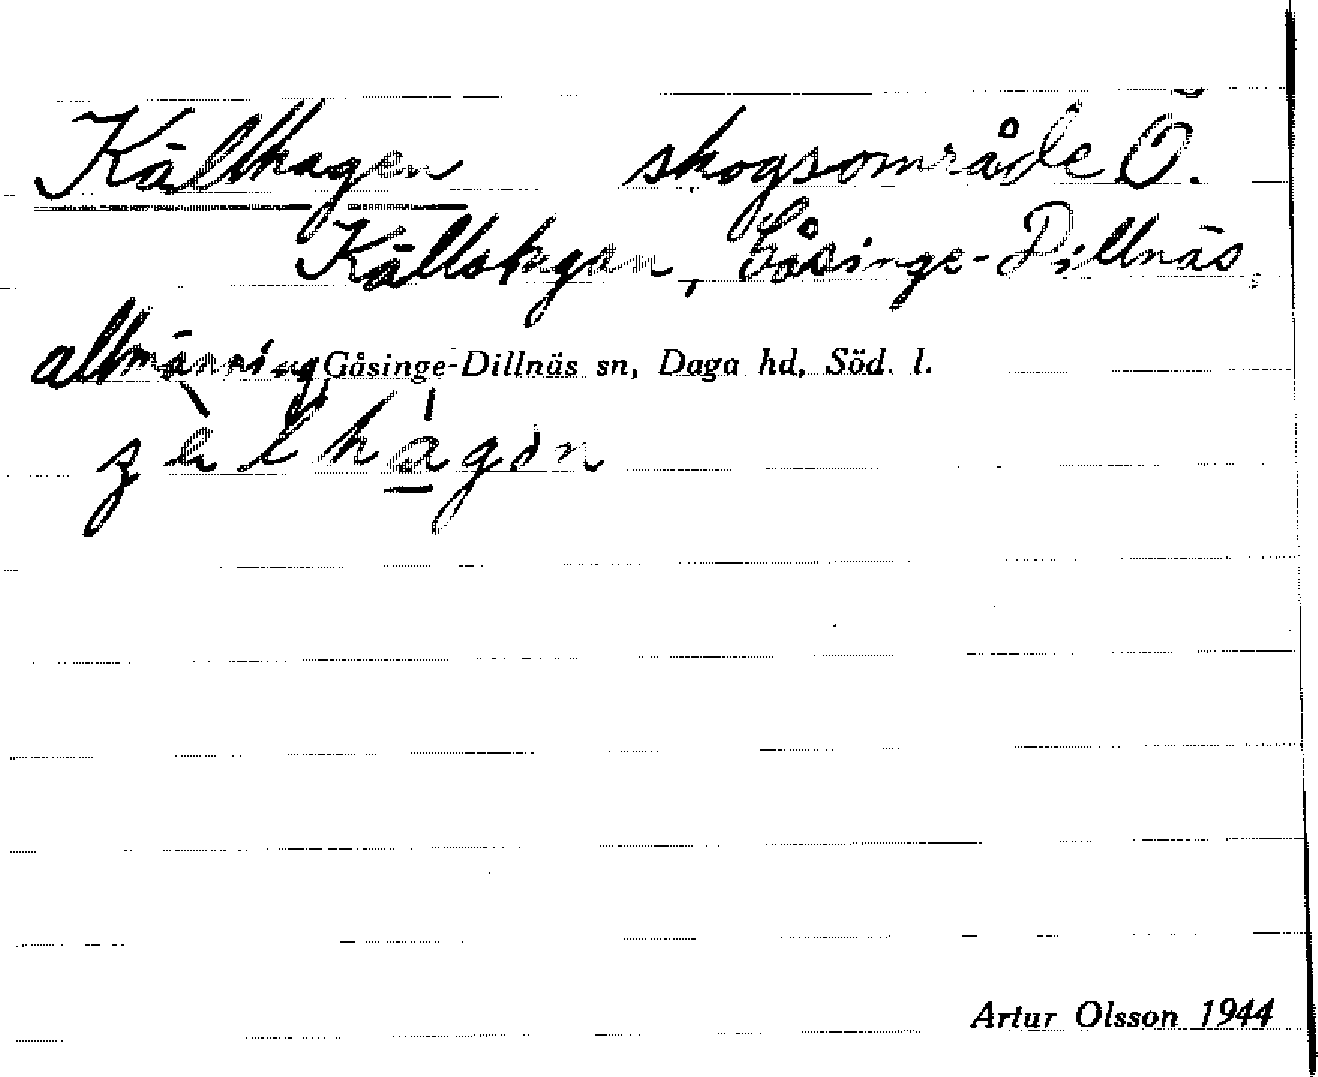 Källhagen skogsområde Ö.
Källskogen, Gåsinge-Dillnäs
allmänning Gåsinge-Dillnäs sn, Daga hd, Söd. l.
Artur Olsson 1944